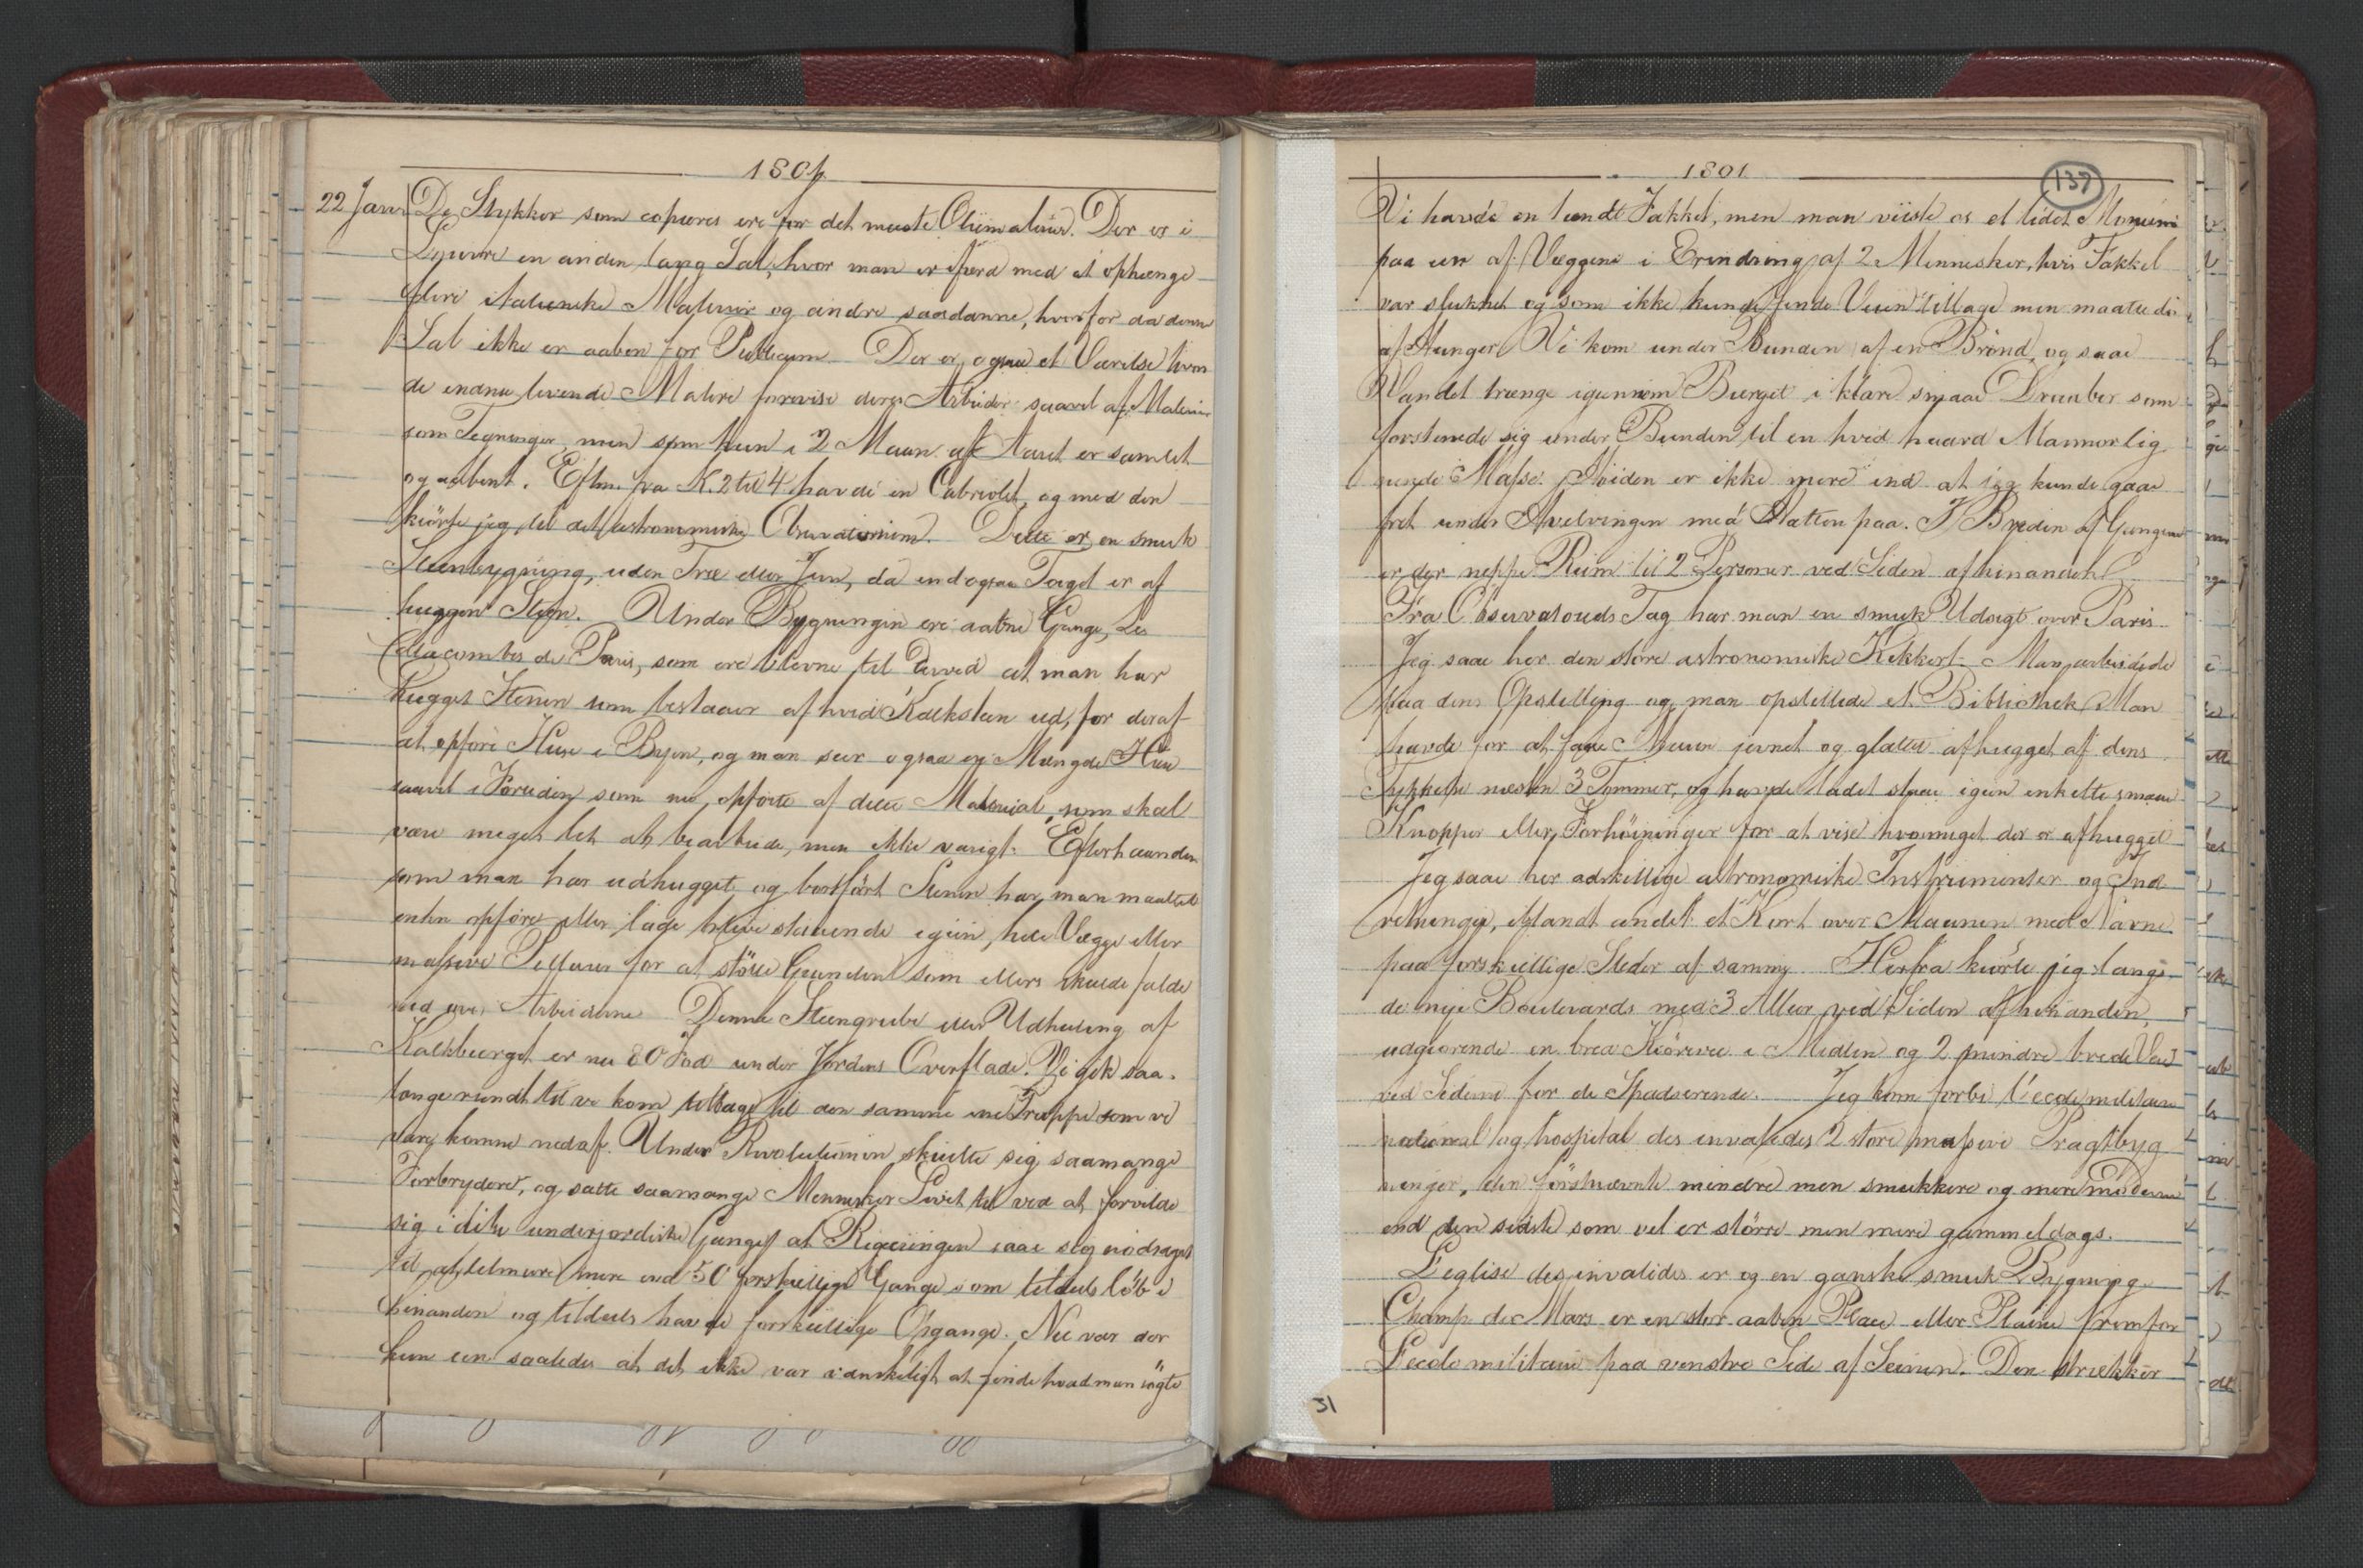 1801
22 Janr De Stykker som copieres ere for det meeste Oliemalerier. Der er i
Louvre en anden lang Sal, hvor man er ifærd med at ophænge
flere italienske Malerier og andre saadanne, hvorfor da denne
Sal ikke er aaben for Publicum. Der er ogsaa et Værelse hvor
de endnu levende Malere forevise deres Arbeider saavel af Malerier
som Tegninger, men som kun i 2 Maan. af Aaret er samlet
og aabent. Eftm. fra K. 2 til 4 havde en Cabriolet, og med den
kiörte jeg til det astronomiske Observatorium. Dette er en smuk
Steenbygning, uden Træ eller Jern, da endogsaa Taget er af
huggen Steen. Under Bygningen ere aabne Gange, Les
Catacombes de Paris, som ere blevne til derved at man har
hugget Stenen som bestaaer af hvid Kalksteen ud, for deraf
at opföre Huse i Byen, og man seer ogsaa en Mængde Huse
saavel i Fortiden som nu, opförte af dette Material, som skal
være meget let at bearbeide, men ikke varigt. Efterhaanden
som man har udhugget og bortfört Stenen har man maattet
enten opföre eller lade blive staaende igien, hele Vægge eller
massive Pillarer for at stötte Grunden som ellers skulde falde
ned over Arbeiderne. Denne Steengrube eller Udhuling af
Kalkbierget er nu 80 Fod under Jordens Overflade. Vi gik saa-
længe rundt til vi kom tilbage til den samme ene Trappe som vi
vare komne nedaf. Under Revolutionen skiulte sig saamange
Forbrydere, og satte saamange Mennesker Livet til ved at forvilde
sig i disse underjordiske Gange at Regieringen saae sig nödsaget
til at tilmure mere end 50 forskiellige Gange som tildeels löb i
hinanden og tildeels havde forskiellige Opgange. Nu var der
kun een saaledes at det ikke var vanskeligt at finde hvad man sögte
1801
137
Vi havde en tændt Fakkel, men man viiste os et lidet Monument
paa een af Væggene i Erindring af 2 Mennesker, hvis Fakkel
var slukket og som ikke kunde finde Veien tilbage men maatte döe
af Hunger. Vi kom under Bunden af en Brönd, og saae
Vandet trænge igiennem Bierget i klare smaae Draaber som
forstenede sig under Bunden til en hvid haard Marmorlig-
nende Masse. Höiden er ikke mere end at jeg kunde gaae
fret under Hvelvingen med Hatten paa. I Breden af Gangene
er der neppe Rum til 2 Personer ved Siden af hinanden
Fra Observatoriets Tag har man en smuk Udsigt over Paris.
Jeg saae her den store astronomiske Kikkert. Man arbeidede
paa dens Opstilling og man opstillede et Bibliothek. Man
havde for at faae Muren jevnet og glattet afhugget af dens
Tykkelse næsten 3 Tommer, og havde ladet staae igien enkelte smaae
Knopper eller Forhöininger for at vise hvormeget der er afhugget
Jeg saae her adskillige astronomiske Instrumenter og Ind-
retninger, iblandt andet et Kort over Maanen med Navne
paa forskiellige Steder af samme. Herfra kiörte jeg langs
de nye Boulevards med 3 Alleer ved Siden af hinanden,
udgiörende en bred Kiörevei i Midten og 2 mindre brede Veie
ved Siderne for de Spadserende. Jeg kom forbi l'ecole militaire
national og hospital des invalides 2 store massive Pragtbyg-
ninger, den förstnævnte mindre men smukkere og mere moderne
end den sidste som vel er större men mere gammeldags.
L'eglise des invalides er og en ganske smuk Bygning.
Champ de Mars er en stor aaben Place eller Plaine fremfor
L'ecole militaire paa venstre Side af Seinen. Den strækker
31